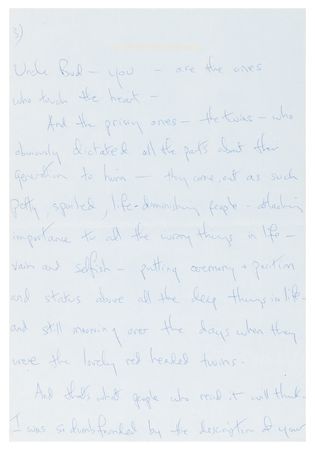 3)
Uncle Bud — you — are the ones
who touch the heart —
And the prissy ones — the twins — who
obviously dictated all the parts about their
generation to him — they come out as such
petty, spoiled, life-diminishing people — attaching
importance to all the wrong things in life —
vain and selfish — putting ceremony & position
and status above all the deep things in life -
and still mourning over the days when they
were the lovely red headed twins.
And that's what people who read it will think.
I was so dumbfounded by the description of your